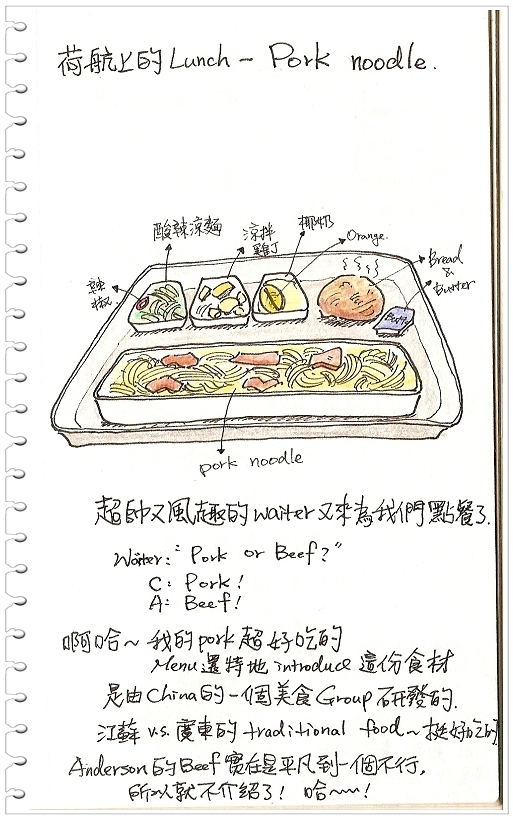 荷航上的Lunch - Pork noodle.
酸辣涼麵
涼拌
雞丁
椰奶
Orange.
Bread
&
Butter
辣
椒
pork noodle
超帥又風趣的waiter又來為我們點餐了.
Waiter: "Pork or Beef?"
C: Pork!
A: Beef!
啊哈~ 我的pork超好吃的
Menu還特地introduce這份食材
是由China的一個美食Group研發的.
江蘇 v.s. 廣東的 traditional food~ 挺好吃的
Anderson的Beef實在是平凡到一個不行,
所以就不介紹了! 哈~~!